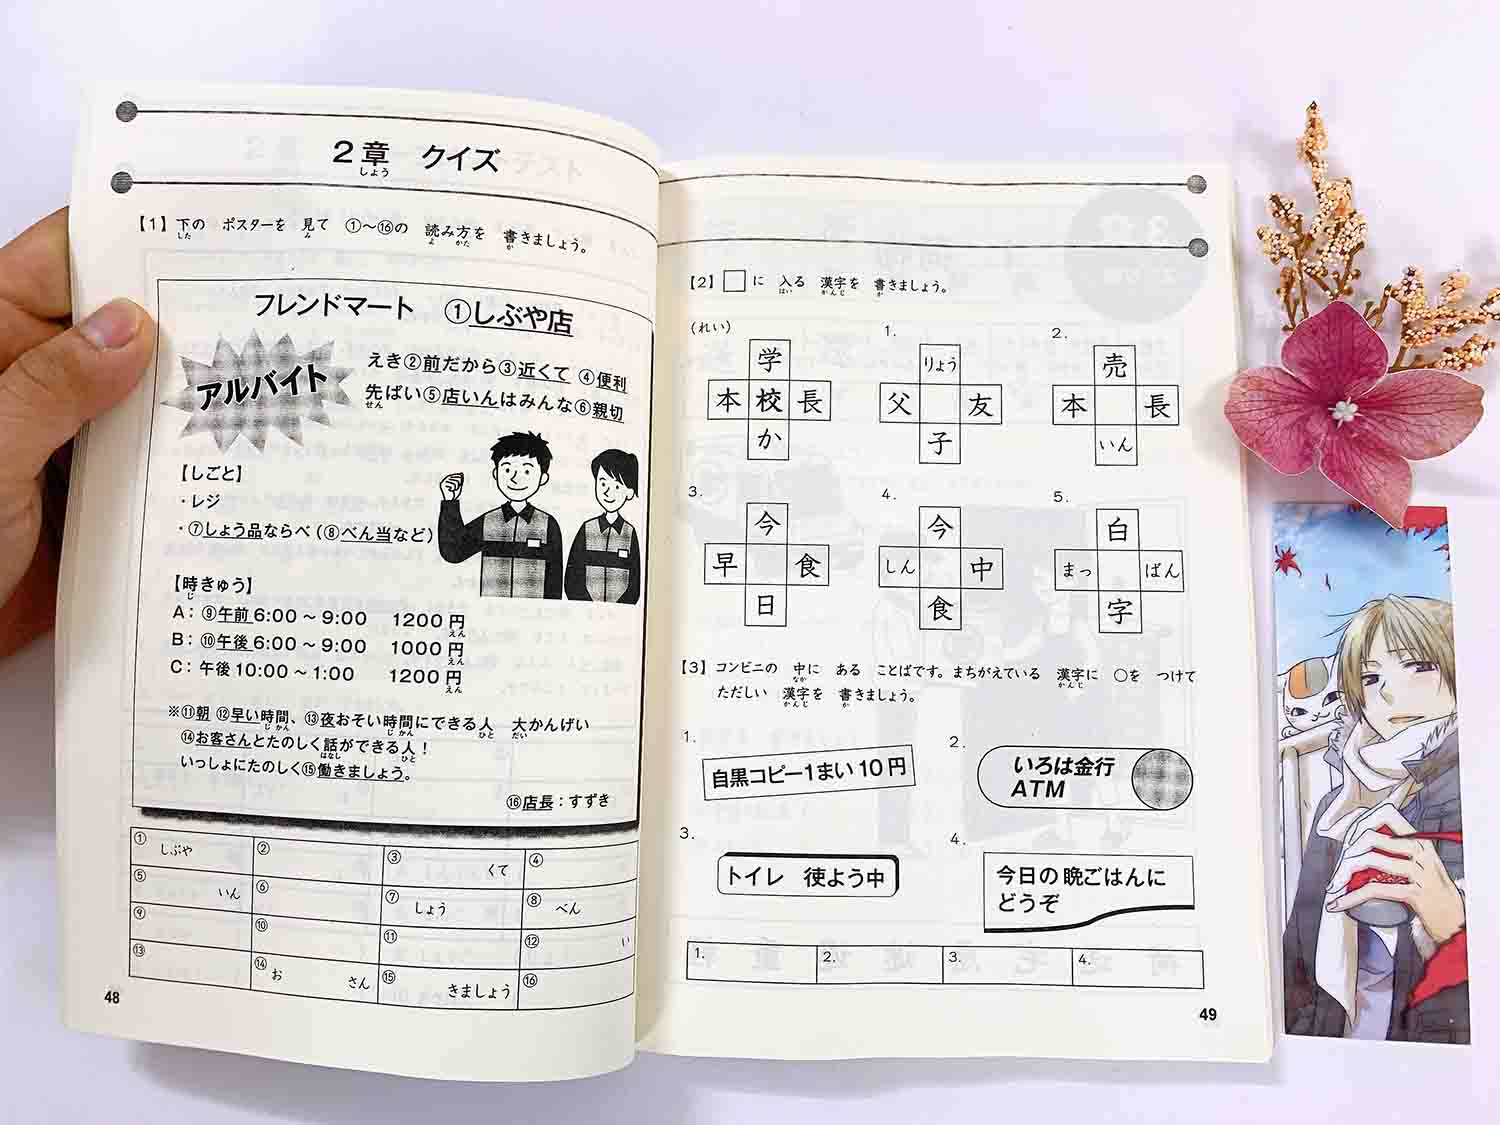 2章 クイズ
しょう
【1】下の ポスターを 見て ①～⑯の 読み方を 書きましょう。
した み よ かた か
フレンドマート ①しぶや店
アルバイト
えき②前だから③近くて ④便利
先ぱい⑤店いんはみんな⑥親切
せん
【しごと】
・レジ
・⑦しょう品ならべ（⑧べん当など）
【時きゅう】
じ
A：⑨午前 6:00 ～ 9:00 1200円
えん
B：⑩午後 6:00 ～ 9:00 1000円
えん
C：午後 10:00 ～ 1:00 1200円
えん
※⑪朝 ⑫早い時間、⑬夜おそい時間にできる人 大かんげい
じかん じかん ひと だい
⑭お客さんとたのしく話ができる人！
はなし ひと
いっしょにたのしく⑮働きましょう。
⑯店長：すずき
① しぶや ② ③ くて ④
⑤ いん ⑥ ⑦ しょう ⑧ べん
⑨ ⑩ ⑪ ⑫ い
⑬ ⑭ お さん ⑮ きましょう ⑯
48
【2】□に 入る 漢字を 書きましょう。
はい かんじ か
（れい） 1. 2.
学 りょう 売
本校長 父 友 本 長
か 子 いん
3. 4. 5.
今 今 白
早 食 しん 中 まっ ばん
日 食 字
【3】コンビニの 中に ある ことばです。まちがえている 漢字に ○を つけて
なか かんじ
ただしい 漢字を 書きましょう。
かんじ か
1.
自黒コピー1まい10円
2.
いろは金行
ATM
3.
トイレ 徒よう中
4.
今日の晩ごはんに
どうぞ
1. 2. 3. 4.
49